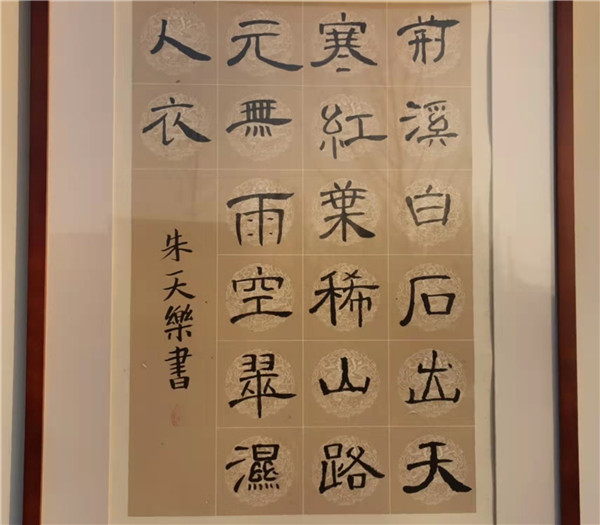 荆溪白石出天
寒紅葉稀山路
元無雨空翠濕
人衣
朱天樂書